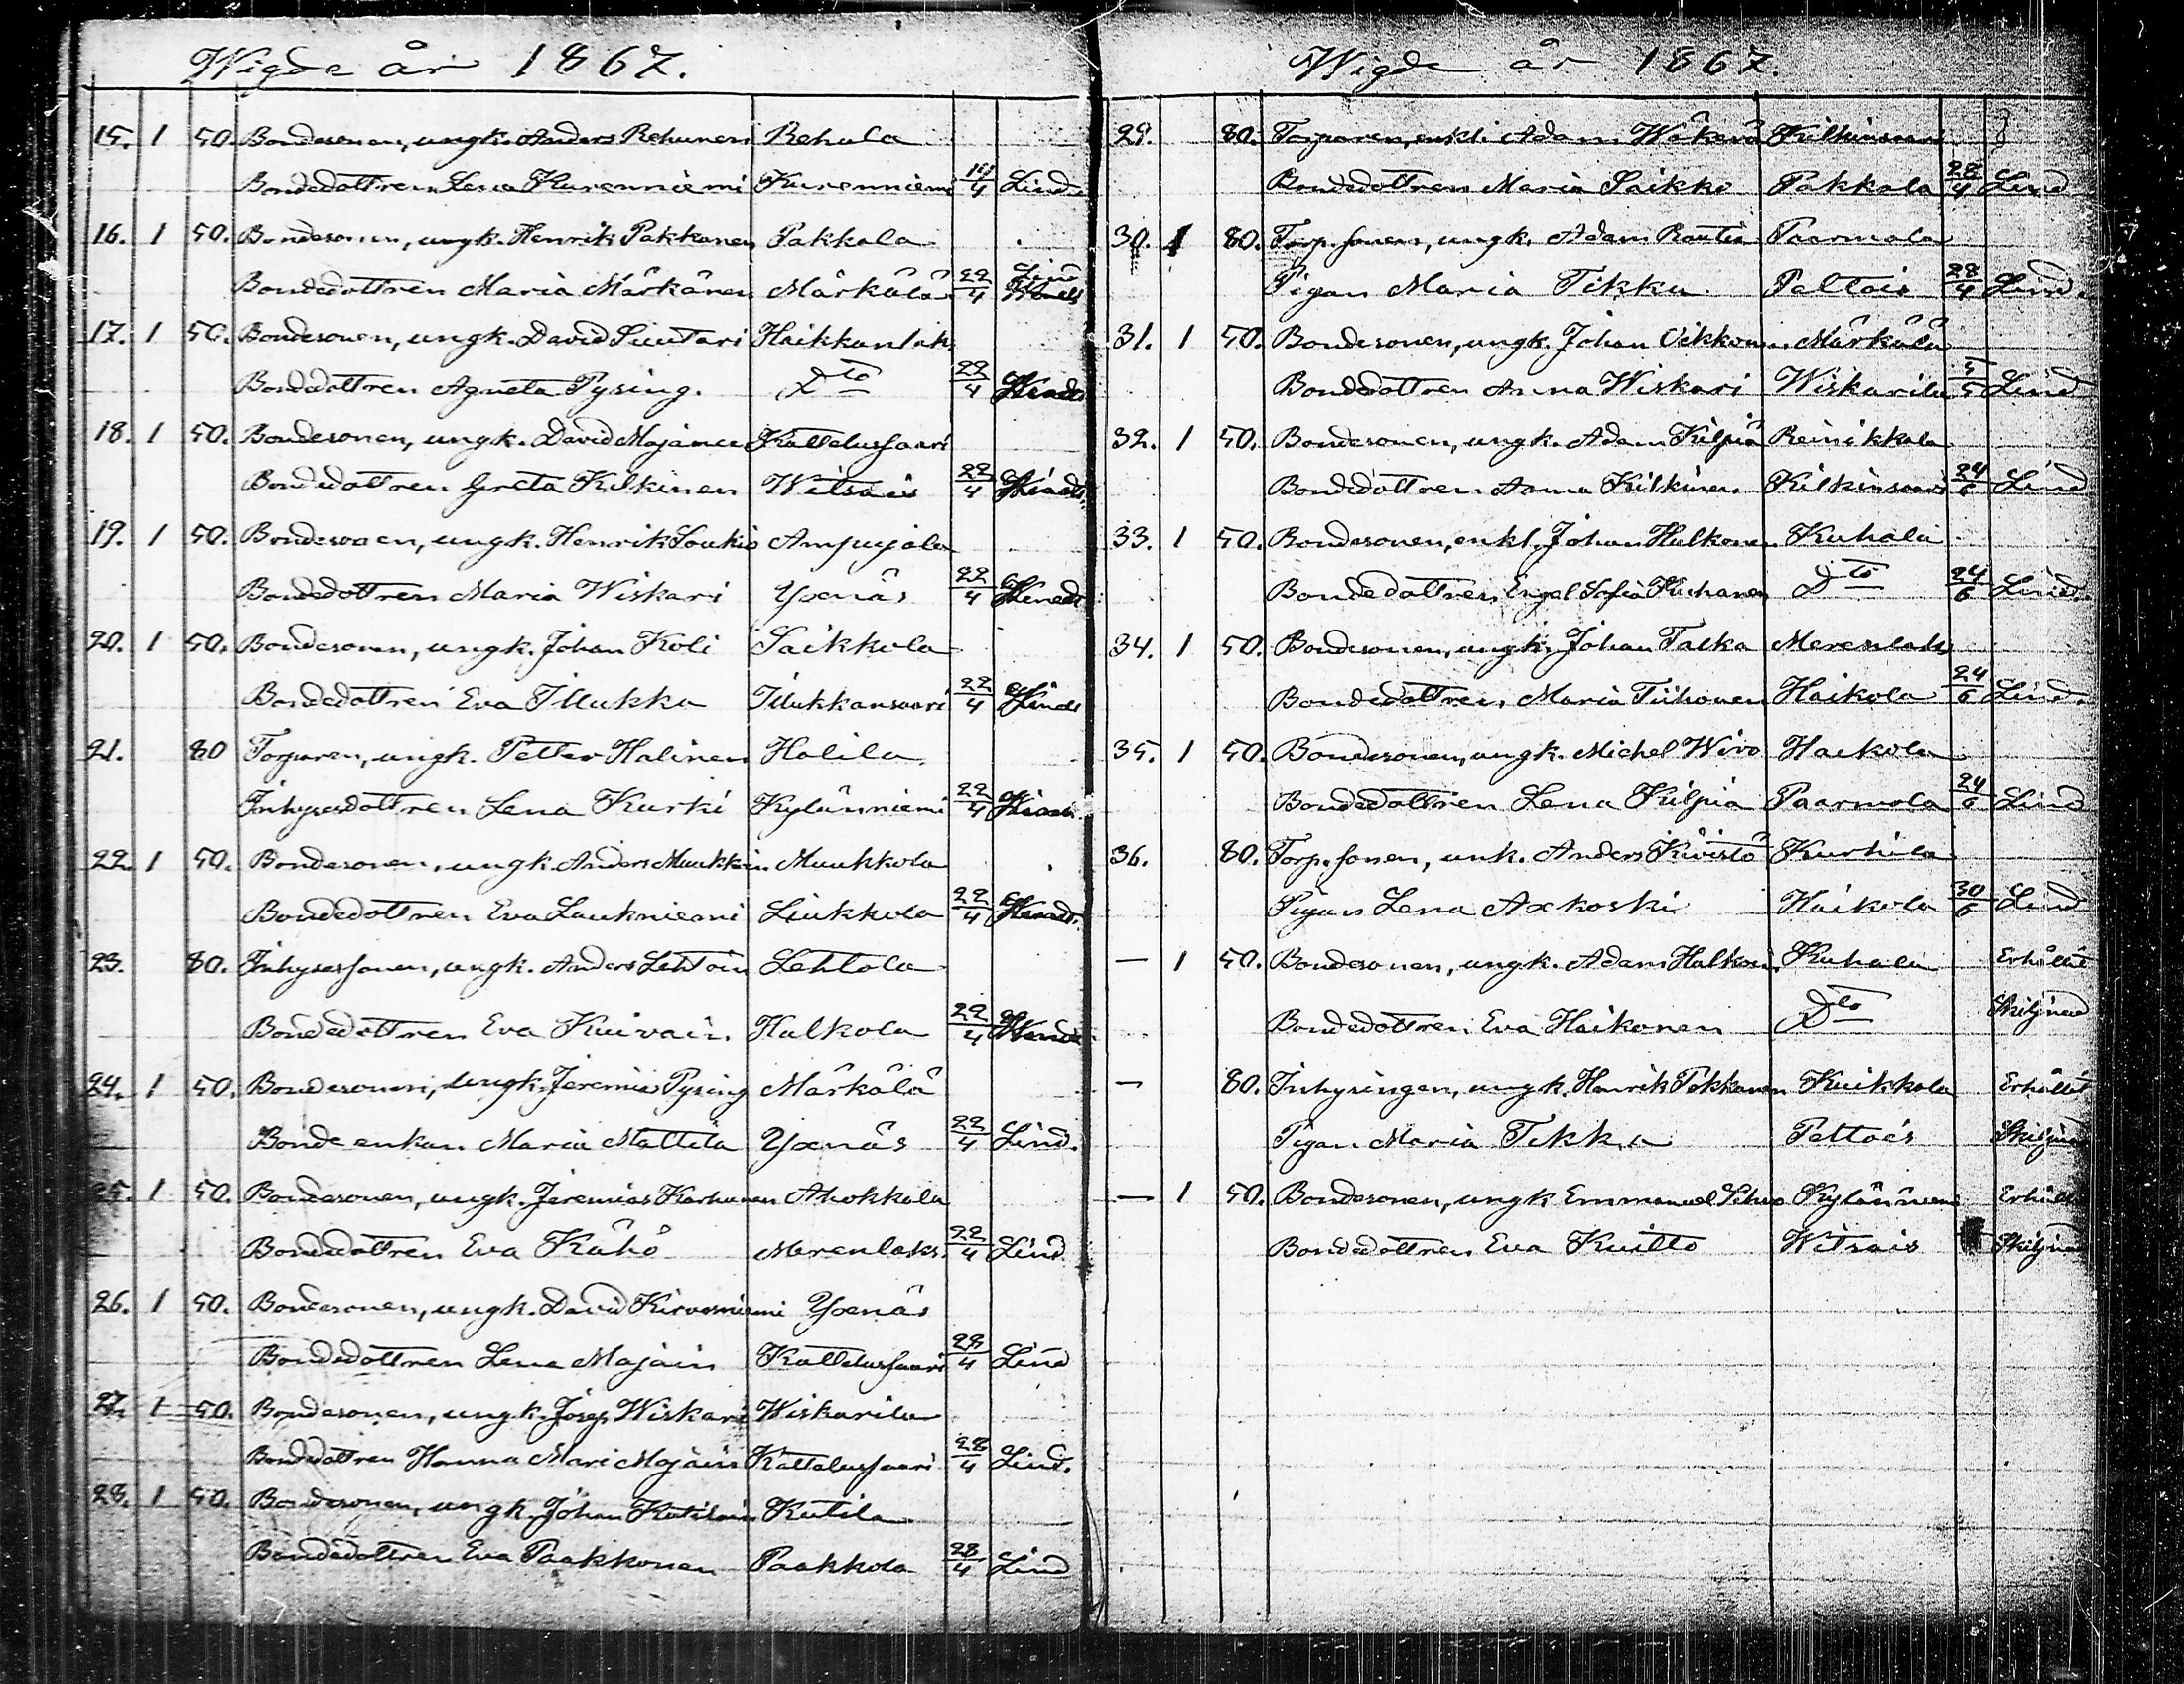 Wigde år 1867.
15. 1 50. Bondesonen, ungk. Anders Rehunen Rehula
Bondedottren Lena Kurenniemi Kurenniemi 14/4 Lind
16. 1 50. Bondesonen, ungk. Henrik Pakkanen Pakkala
Bondedottren Maria Märkänen Märkälä 22/4 Lind
17. 1 50. Bondesonen, ungk. David Suutari Haikkanlaks
Bondedottren Agneta Pysing. Dto 22/4
18. 1 50. Bondesonen, ungk. David Majanen Kattelussaari
Bondedottren Greta Kilkinen Witsais 22/4
19. 1 50. Bondesonen, ungk. Henrik Loukio Ampujala
Bondedottren Maria Wiskari Yxenäs 22/4
20. 1 50. Bondesonen, ungk. Johan Koli Saikkola
Bondedottren Eva Illukka Illukkansaari 22/4
21. 80 Torparen, ungk. Petter Halinen Halila
Inhysesdottren Lena Kurki Kylänniemi 22/4
22. 1 50. Bondesonen, ungk. Anders Muukkin Muukkola
Bondedottren Eva Laukniemi Liukkola 22/4
23. 80. Inhysessonen, ungk. Anders Lehtoin Lehtola
Bondedottren Eva Kuivain. Halkola 22/4
24. 1 50. Bondesonen, ungk. Jeremias Pysing Märkälä
Bonde enkan Maria Mattila Yxenäs 22/4 Lind.
25. 1 50. Bondesonen, ungk. Jeremias Karhunen Ahokkala
Bondedottren Eva Kähö Merenlaks. 22/4 Lind
26. 1 50. Bondesonen, ungk. David Kirvesniemi Yxenäs
Bondedottren Lena Majain Kattelussaari 28/4 Lind
27. 1 50. Bondesonen, ungk. Josep Wiskari Wiskarila
Bondedottren Hanna Mari Majain Kattelussaari 28/4 Lind.
28. 1 50. Bondesonen, ungk. Johan Kutilain Kutila
Bondedottren Eva Paakkonen Paakkola 28/4 Lind
Wigde år 1867.
29. 80. Torparen, enkl. Adam Wäkevä Kilkinsaari
Bondedottren Maria Saikko Pakkala 28/4 Lind
30. 1 80. Torp. sonen, ungk. Adam Rautia Paarmala
Pigan Maria Tikka Paltais 28/4 Lind.
31. 1 50. Bondesonen, ungk. Johan Oikkonen Märkälä
Bondedottren Anna Wiskari Wiskarila 5/5 Lind
32. 1 50. Bondesonen, ungk. Adam Kilpiä Reinikkala
Bondedottren Anna Kilkinen Kilkinsaari 24/6 Lind
33. 1 50. Bondesonen, enkl. Johan Hulkonen Kuhala
Bondedottren Engel Sofia Kuhanen Dto 24/6 Lind.
34. 1 50. Bondesonen, ungk. Johan Talka Merenlaks
Bondedottren Maria Tiihonen Haikola 24/6 Lind.
35. 1 50. Bondesonen, ungk. Michel Wiro Haikola
Bondedottren Lena Kilpiä Paarmola 24/6 Lind
36. 80. Torp. sonen, unk. Anders Kivistö Kurhila
Pigan Lena Axkoski Haikola 30/6 Lind
— 1 50. Bondesonen, ungk. Adam Hulkoin. Kuhala Erhållit
Bondedottren Eva Haikonen Dto Skiljned
— 80. Inhysingen, ungk. Henrik Pokkanen Kuikkola Erhållit
Pigan Maria Tikka Peltois Skiljned
— 1 50. Bondesonen, ungk. Emmanuel Kylänniemi Erhållit
Bondedottren Eva Kuitto Witsais Skiljned